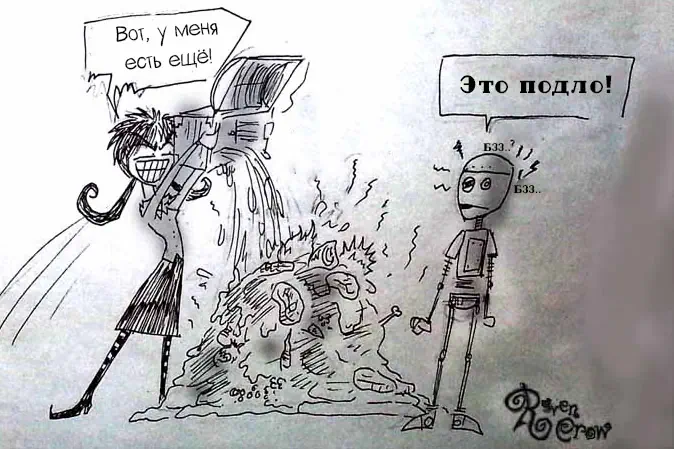 Вот, у меня
есть ещё!
Это подло!
Бзз..?
Бзз..
Raven
Crow